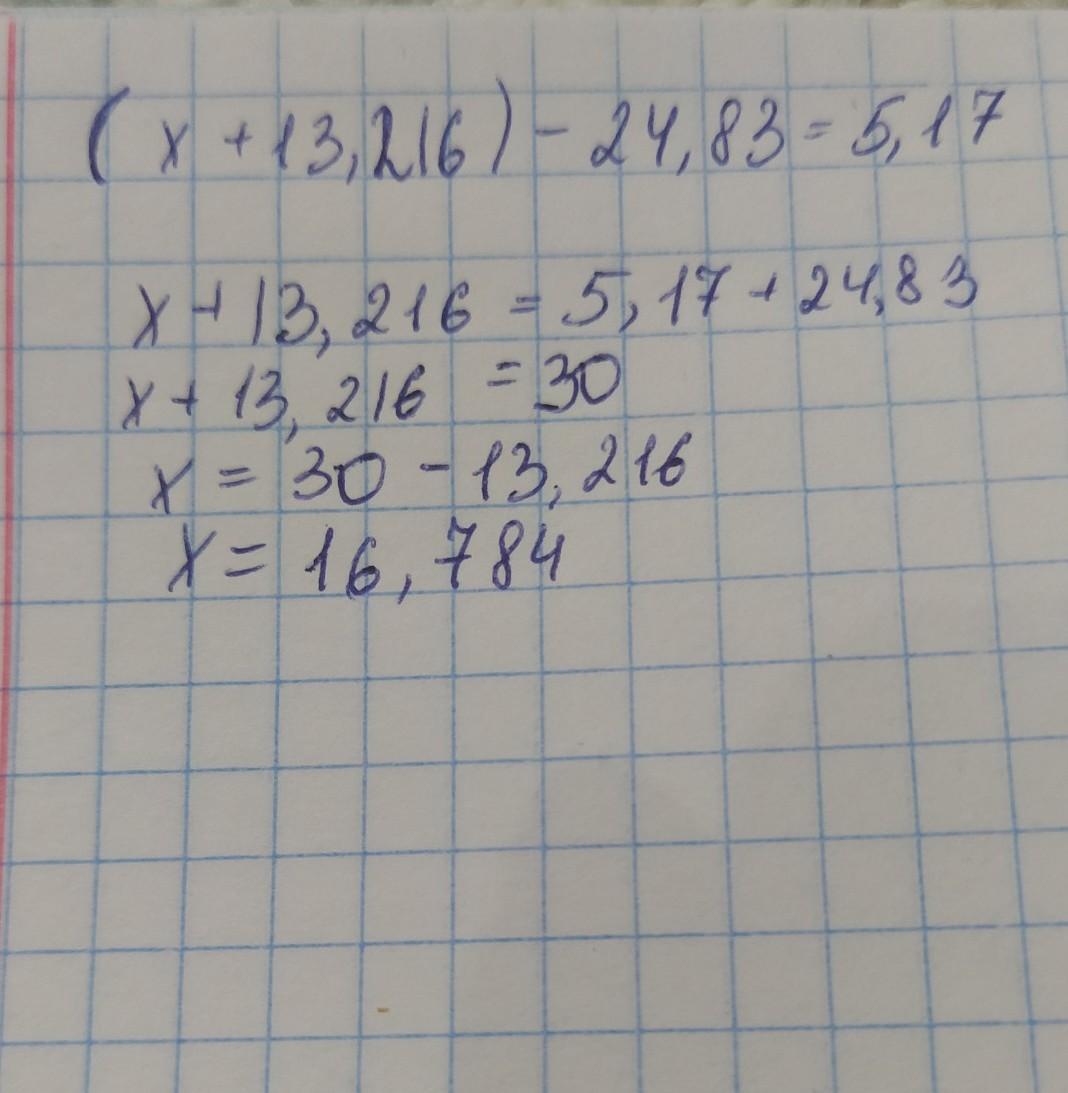 (x + 13,216) - 24,83 = 5,17
x + 13,216 = 5,17 + 24,83
x + 13,216 = 30
x = 30 - 13,216
x = 16,784